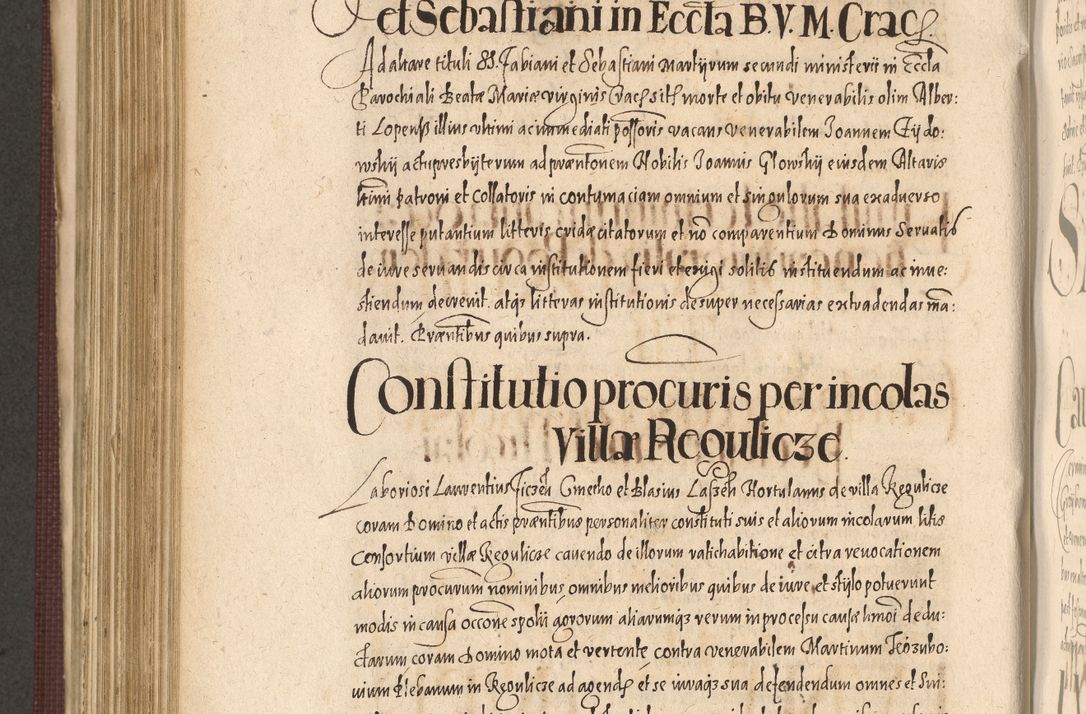 et Sebastiani in Eccla B. V. M. Crac.
Ad altare tituli SS. Fabiani et Sebastiani Martijrum secundi ministerii in Eccla
Parochiali Beatæ Mariæ virginis Crac sit morte et obitu venerabilis olim Alber:
ti Lopensß illius ultimi ac immediati possoris vacans venerabilem Joannem
wskij actu presbijterum ad præntonem Nobilis Joannis Glowskij eiusdem Altaris
patroni et Collatoris in contumaciam omnium et singulorum sua exadverso
interesse putantium litteris cridæ citatorum et nō comparentium Dominus Servatis
de iure servandis circa institutionem fieri et exigi solitis instituendum ac inve:
stiendum decrevit. atq3 litteras institutionis desuper necessarias extradendas mā:
davit. Præntibus quibus supra.
Constitutio procuris per incolas
Villæ Regulicze.
Laboriosi Laurentius Cmetho et Blasius Hortulanus de villa Regulicze
coram Domino et actis præntibus personaliter constituti suis et aliorum incolarum litis
consortium villæ Regulicze cavendo de illorum ratihabitione et citra revocationem
aliorum procurum nominibus omnibus melioribus quibus de iure et stijlo potuerunt
modis in causa occōne spolii agrorum aliarumq3 rerum in processu causæ hmōi dedu:
ctarum coram Domino mota et vertente contra venerabilem Martinum
vium Plebanum in Regulicze ad agend et se iuvaq3 sua defendendum omnes et Sin: